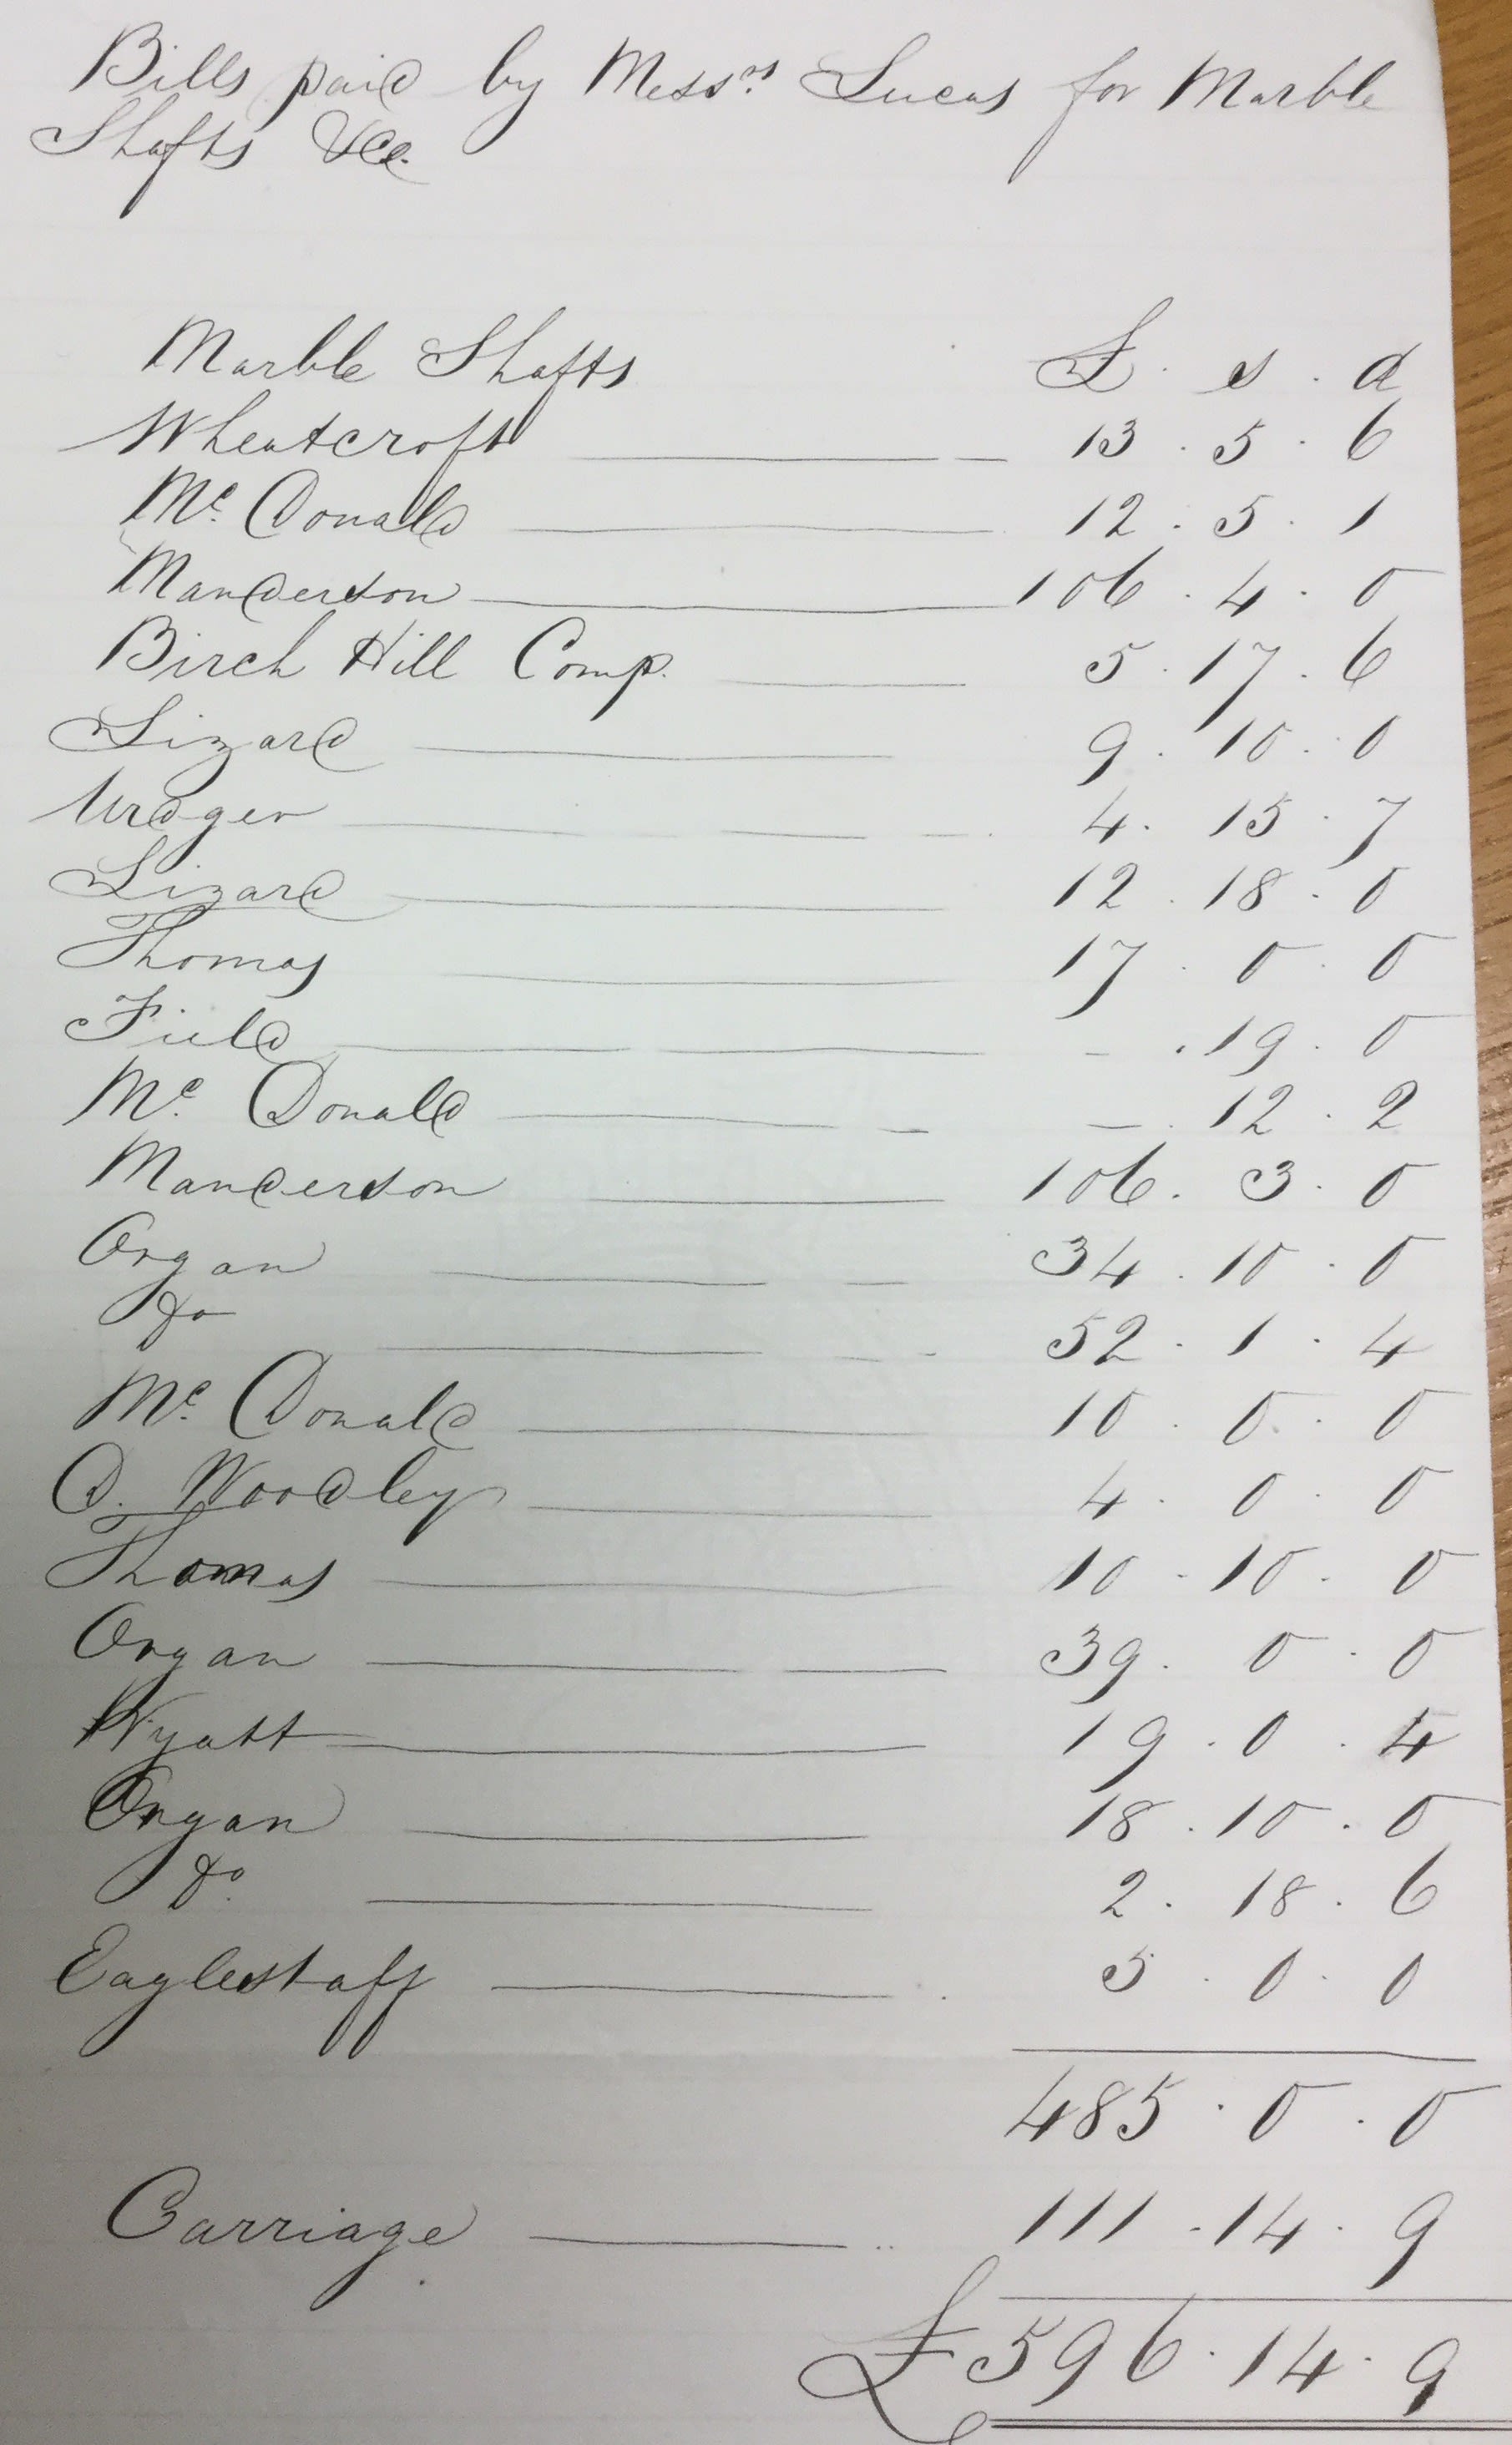 Bills paid by Messrs. Lucas for Marble
Shafts &c.
Marble Shafts £ . s . d
Wheatcroft 13 . 5 . 6
Mc. Donald 12 . 5 . 1
Manderson 106 . 4 . 0
Birch Hill Comp. 5 . 17 . 6
Lizard 9 . 10 . 0
4 . 15 . 7
Lizard 12 . 18 . 0
Thomas 17 . 0 . 0
Field - . 19 . 0
Mc. Donald - . 12 . 2
Manderson 106 . 3 . 0
Organ 34 . 10 . 0
Do 52 . 1 . 4
Mc. Donald 10 . 0 . 0
D. Woodley 4 . 0 . 0
Thomas 10 . 10 . 0
Organ 39 . 0 . 0
Wyatt 19 . 0 . 4
Organ 18 . 10 . 0
Do. 2 . 18 . 6
Eaglestaff 5 . 0 . 0
485 . 0 . 0
Carriage 111 . 14 . 9
£596 . 14 . 9